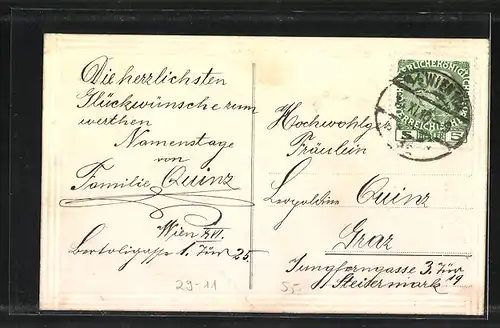 Die herzlichsten
Glückwünsche zum
werthen
Namenstage
von
Familie Quinz
Wien XVI.
1. Tür 25.
Hochwohlgeb
Fräulein
Leopoldine Quinz
Graz
Jungferngasse 3. Tür 19
Steiermark
29-11
WIEN
5 5